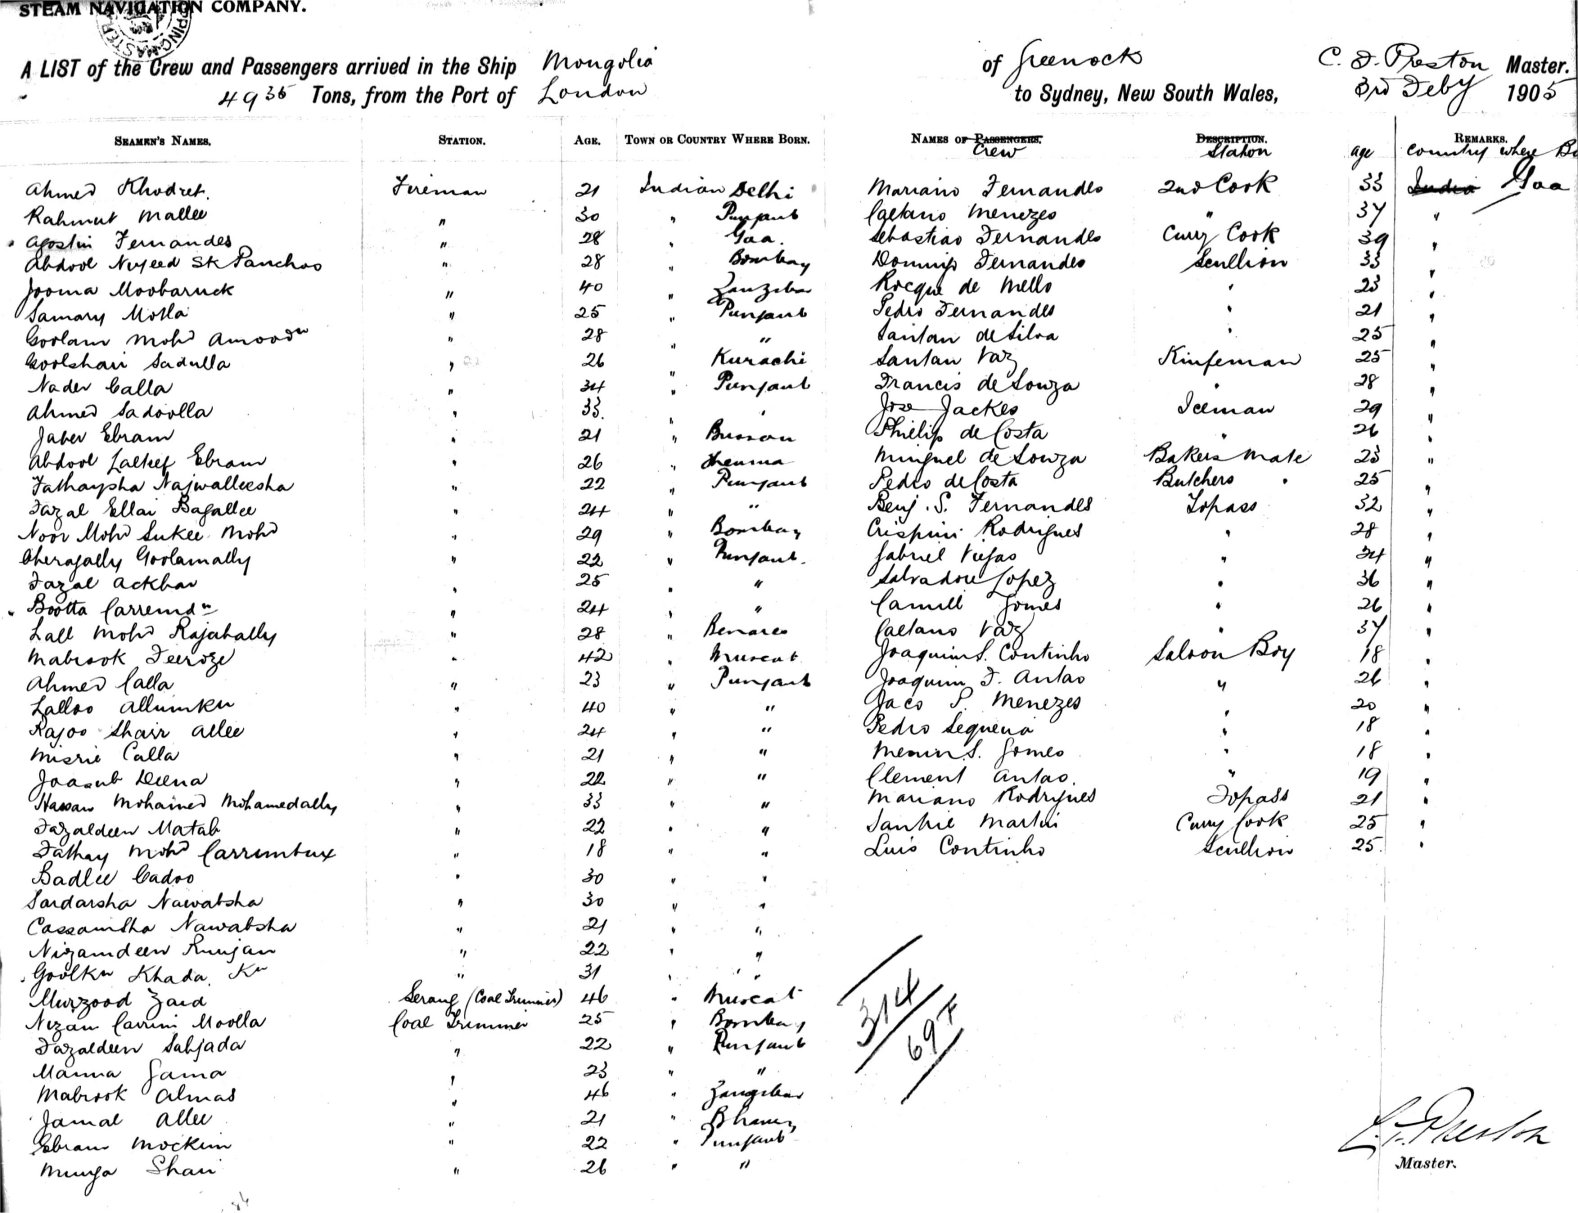 STEAM NAVIGATION COMPANY.
A LIST of the Crew and Passengers arrived in the Ship Mongolia of Greenock C. F. Preston Master.
4935 Tons, from the Port of London to Sydney, New South Wales, 3rd Feby 1905
SEAMEN'S NAMES. STATION. AGE. TOWN OR COUNTRY WHERE BORN.
Ahmed Khodret Fireman 21 Indian Delhi
Rahmut Mallee " 30 " Punjaub
Agostin Fernandes " 28 " Goa.
Abdool Nyeed Sk Panchoo " 28 " Bombay
Jooma Moobaruck " 40 " Zanzibar
Samary Molla " 25 " Punjaub
Goolam Mohd Amoodn " 28 " "
Goolshair Sadulla " 26 " Kurachi
Nader Calla " 34 " Punjaub
Ahmed Sadoolla " 33. " "
Jaber Ebram " 21 "
Abdool Latteef Ebram " 26 "
Fathaysha Najwalleesha " 22 " Punjaub
Fazal Ellai Bagallee " 24 " "
Noor Mohd Sukee Mohd " 29 " Bombay
Cheragally Goolamally " 22 " Punjaub.
Fazal Ackbar " 25 " "
Bootta Carremdn " 24 " "
Lall Mohd Rajahally " 28 " Benares
Mabrook Feeroze " 42 " Muscat
Ahmed Calla " 23 " Punjaub
Lalloo Allumkn " 40 " "
Rajoo Shair Allee " 24 " "
Misrie Calla " 21 " "
Joasub Deena " 22 " "
Hassan Mohamed Mohamedally " 33 " "
Fazaldeen Matab " 22 " "
Fathay Mohd Carrumbux " 18 " "
Badlee Cadoo " 30 " "
Sardarsha Nawabsha " 30 " "
Cassamsha Nawabsha " 21 " "
Nizamdeen Runjan " 22 " "
Goolkn Khada Kn " 31 " "
Murzood Zaid Serang (Coal Trimmer) 46 " Muscat
Nizam Carrim Moolla Coal Trimmer 25 " Bombay
Fazaldeen Sahjada " 22 " Punjaub
Manna Gama " 23 " "
Mabrook Almas " 46 " Zanzibar
Jamal Allee " 21 "
Ebram Mockim " 22 " Punjaub
Munga Shair " 26 " "
NAMES OF PASSENGERS. Crew DESCRIPTION. Station age REMARKS. Country where
Mariano Fernandes 2nd Cook 33 India Goa
Caetano Menezes " 37 "
Sebastiao Fernandes Curry Cook 39 "
Domingo Fernandes Scullion 33 "
Rocque de Mello " 23 "
Pedro Fernandes " 21 "
Santan de Silva " 25 "
Santan Vaz Knifeman 25 "
Francis de Souza " 28 "
Jose Jackes Iceman 29 "
Phillip de Costa " 26 "
Minguel de Souza Bakers Mate 23 "
Pedro de Costa Butchers " 25 "
Benj. S. Fernandes Topass 32 "
Crispini Rodrigues " 28 "
Gabriel Viegas " 34 "
Salvadore Lopez " 36 "
Camill Gomes " 26 "
Caetano Vaz " 37 "
Joaquim S. Continho Saloon Boy 18 "
Joaquim F. Antao " 26 "
Jaco P. Menezes " 20 "
Pedro Sequeria " 18 "
S. Gomes " 18 "
Clement Antao. " 19 "
Mariano Rodrigues Topass 21 "
Martin Curry Cook 25 "
Luis Continho Scullion 25. "
314
69
C. F. Preston
Master.